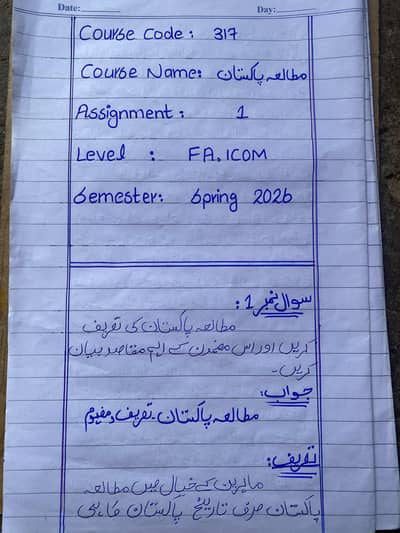 Date: Day:
Course Code: 317
Course Name: مطالعہ پاکستان
Assignment: 1
Level : FA.ICOM
Semester: Spring 2026
سوال نمبر 1:
مطالعہ پاکستان کی تعریف
کریں اور اس مضمون کے اہم مقاصد بیان
کریں۔
جواب:
مطالعہ پاکستان۔تعریف و مفہوم
تعریف:
ماہرین کے خیال میں مطالعہ
پاکستان صرف تاریخ پاکستان کا ہی